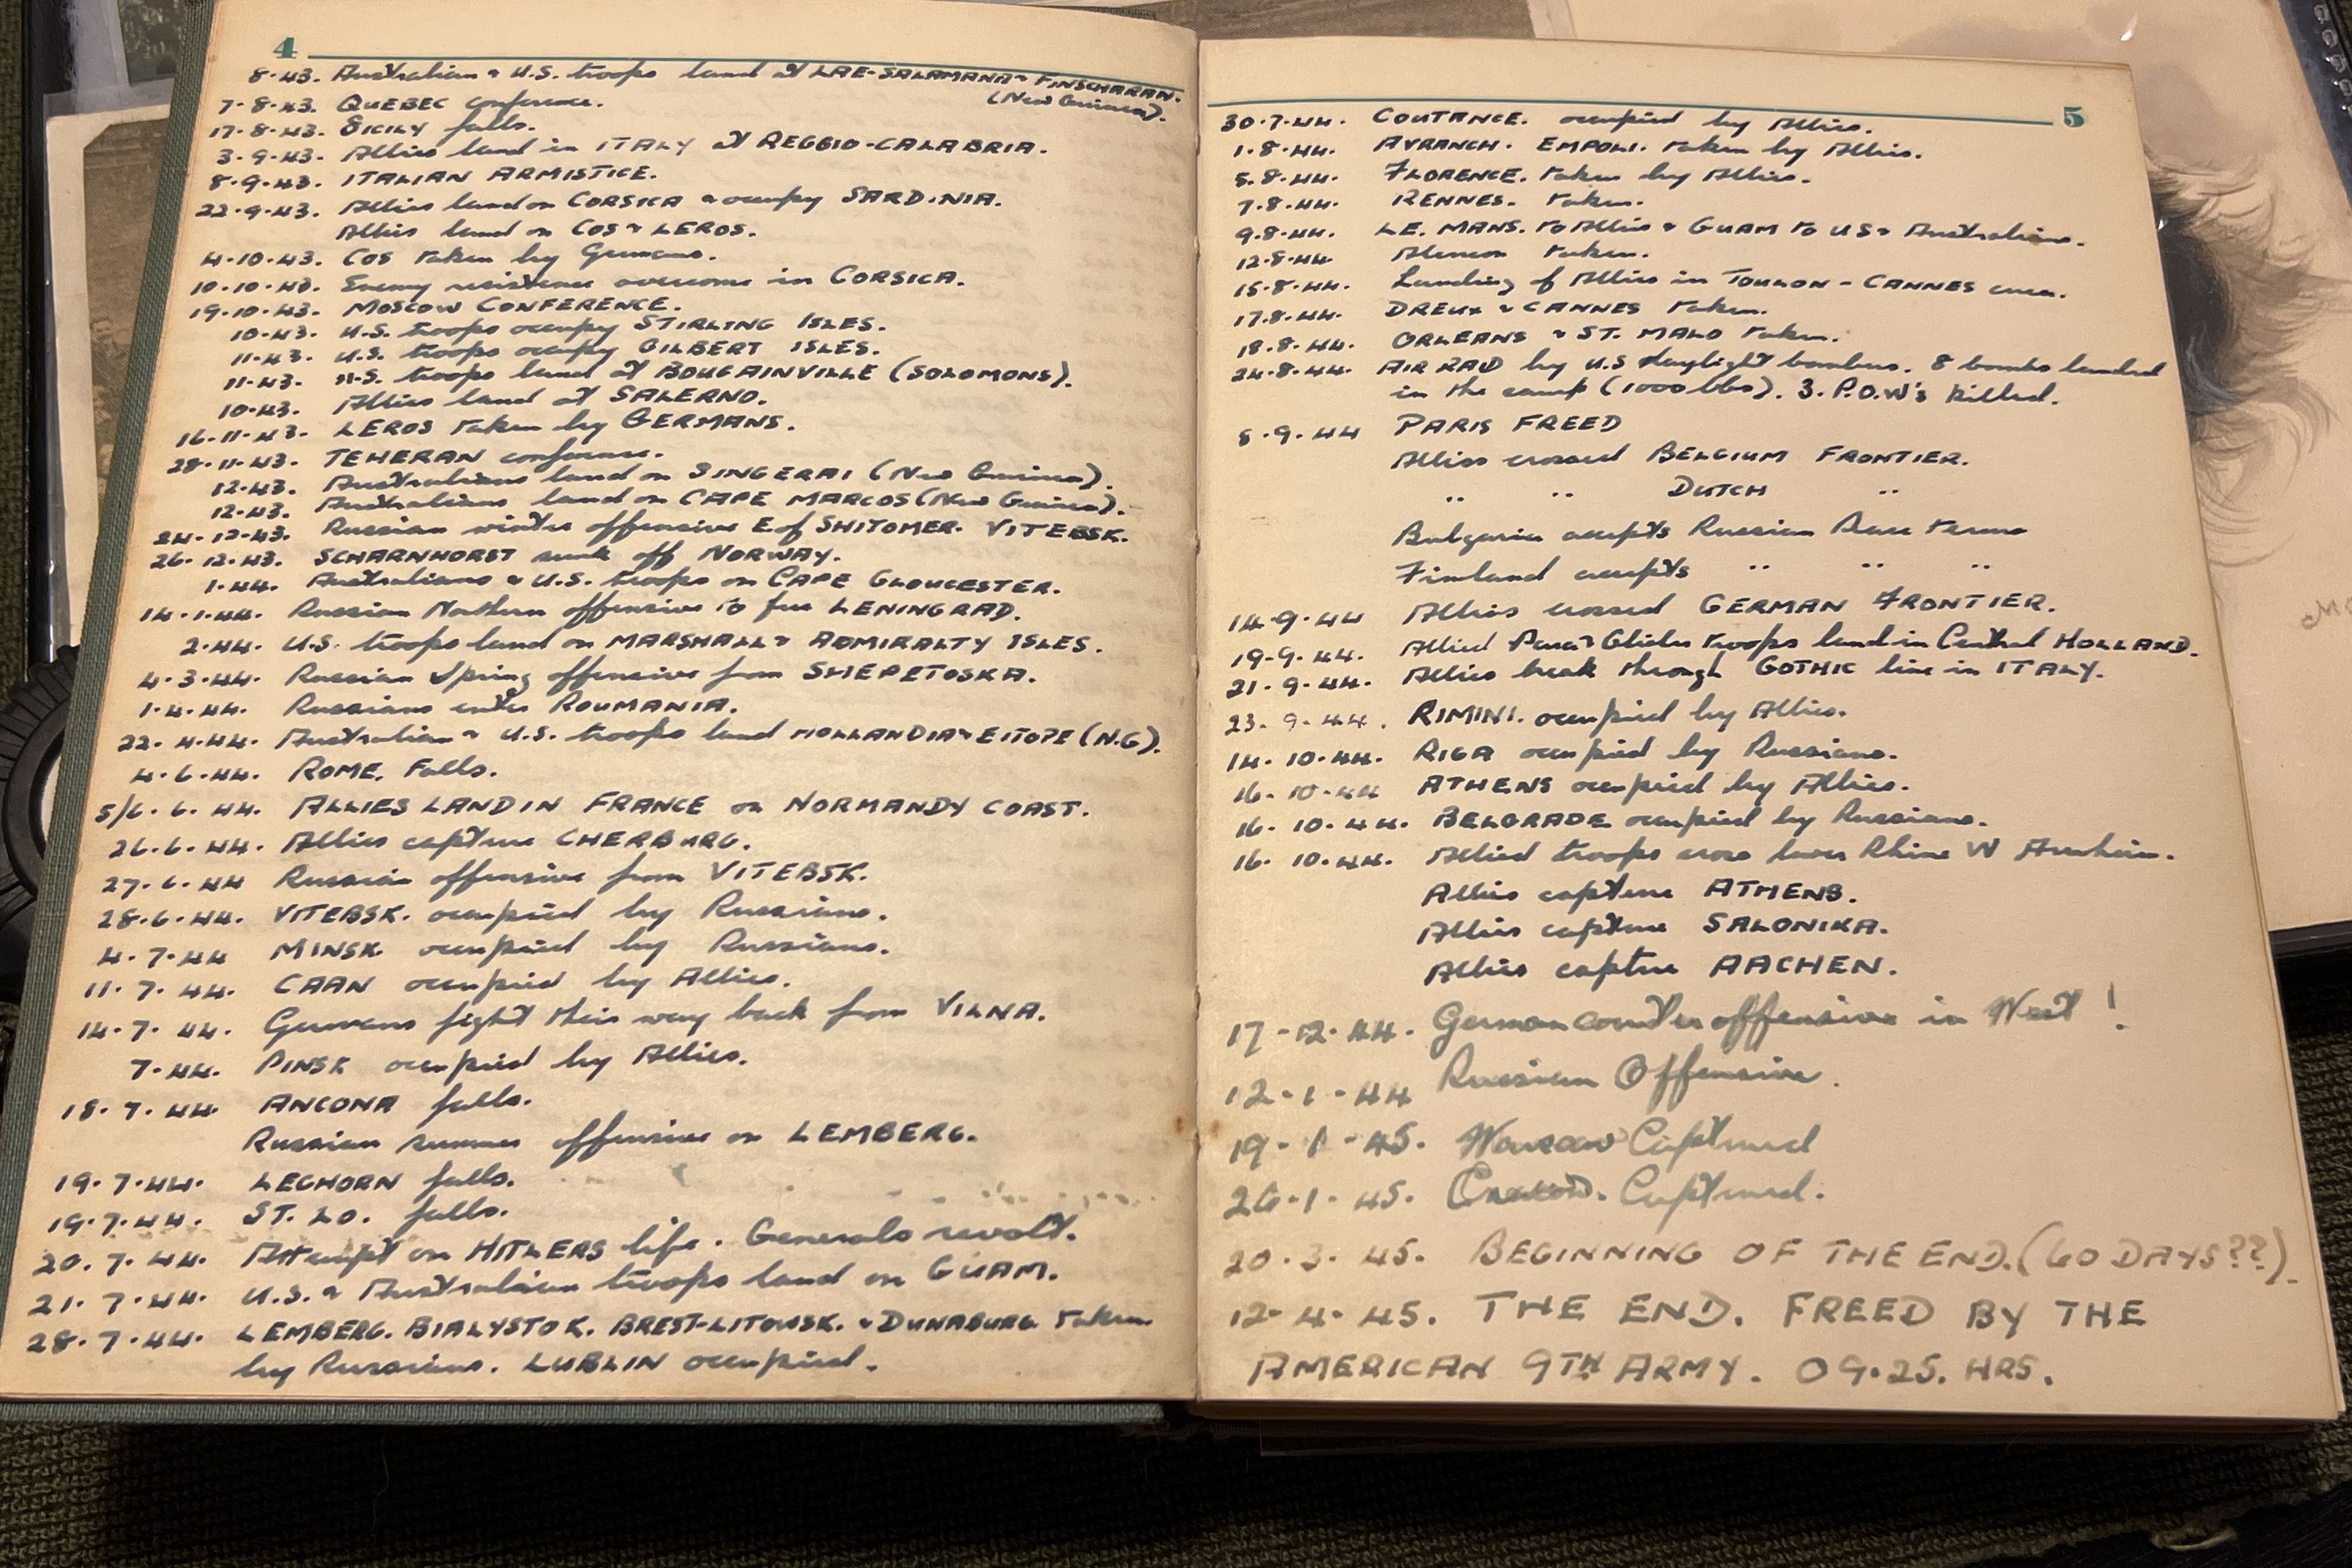 4
8·43. Australian & U.S. troops land at LAE-SALAMANA & FINSCHARAN.
(New Guinea).
7-8-43. QUEBEC conference.
17-8-43. SICILY falls.
3-9-43. Allies land in ITALY at REGGIO-CALABRIA.
8-9-43. ITALIAN ARMISTICE.
22-9-43. Allies land on CORSICA & occupy SARDINIA.
Allies land on COS & LEROS.
4-10-43. COS taken by Germans.
10-10-43. Enemy resistence overcome in CORSICA.
19-10-43. MOSCOW CONFERENCE.
10-43. U.S. troops occupy STIRLING ISLES.
11-43. U.S. troops occupy GILBERT ISLES.
11-43. U.S. troops land at BOUGAINVILLE (SOLOMONS).
10-43. Allies land at SALERNO.
16-11-43. LEROS taken by GERMANS.
28-11-43. TEHERAN conference.
12-43. Australians land on SINGERAI (New Guinea).
12-43. Australians land on CAPE MARCOS (New Guinea).
24-12-43. Russian winter offensive E of SHITOMER. VITEBSK.
26-12-43. SCHARNHORST sunk off NORWAY.
1-44. Australians & U.S. troops on CAPE GLOUCESTER.
14-1-44. Russian Northern offensive to free LENINGRAD.
2-44. U.S. troops land on MARSHALL & ADMIRALTY ISLES.
4-3-44. Russian Spring offensive from SHEPETOSKA.
1-4-44. Russians enter ROUMANIA.
22-4-44. Australian & U.S. troops land HOLLANDIA & EITOPE (N.G).
4-6-44. ROME. Falls.
5/6-6-44. ALLIES LAND IN FRANCE on NORMANDY COAST.
26-6-44. Allies capture CHERBURG.
27-6-44 Russian offensive from VITEBSK.
28-6-44. VITEBSK. occupied by Russians.
4-7-44 MINSK occupied by Russians.
11-7-44. CAAN occupied by Allies.
14-7-44. Germans fight their way back from VILNA.
7-44. PINSK occupied by Allies.
18-7-44 ANCONA falls.
Russian summer offensive on LEMBERG.
19-7-44. LEGHORN falls.
19-7-44. ST. LO. falls.
20.7-44. Attempt on HITLERS life. Generals revolt.
21-7-44. U.S. & Australian troops land on GUAM.
28-7-44. LEMBERG. BIALYSTOK. BREST-LITOWSK. & DUNABURG taken
by Russians. LUBLIN occupied.
5
30-7-44. COUTANCE. occupied by Allies.
1-8-44. AVRANCH. EMPOLI. taken by Allies.
5-8-44. FLORENCE. taken by Allies.
7-8-44. RENNES. taken.
9-8-44. LE. MANS. to Allies & GUAM to US & Australians.
12-8-44 Alencon taken.
15-8-44. Landing of Allies in TOULON - CANNES area.
17.8-44. DREUX & CANNES taken.
18.8-44. ORLEANS & ST. MALO taken.
24-8-44. AIR RAID by U.S daylight bombers. 8 bombs landed
in the camp (1000 lbs). 3. P.O.W's killed.
5-9-44 PARIS FREED
Allies crossed BELGIUM FRONTIER.
.. .. DUTCH ..
Bulgaria accepts Russian Peace terms
Finland accepts .. .. ..
14-9-44 Allies crossed GERMAN FRONTIER.
19-9-44. Allied Para & Glider troops land in Central HOLLAND.
21-9-44. Allies break through GOTHIC line in ITALY.
23-9-44. RIMINI. occupied by Allies.
14-10-44. RIGA occupied by Russians.
16-10-44 ATHENS occupied by Allies.
16-10-44. BELGRADE occupied by Russians.
16-10-44. Allied troops cross lower Rhine W Arnheim.
Allies capture ATHENS.
Allies capture SALONIKA.
Allies captue AACHEN.
17-12-44. German counter offensive in West!
12-1-44 Russian Offensive.
19-1-45. Warsaw Captured
26-1-45. Cracow. Captured.
20-3-45. BEGINNING OF THE END. (60 DAYS??).
12-4-45. THE END. FREED BY THE
AMERICAN 9TH ARMY. 09·25. HRS.